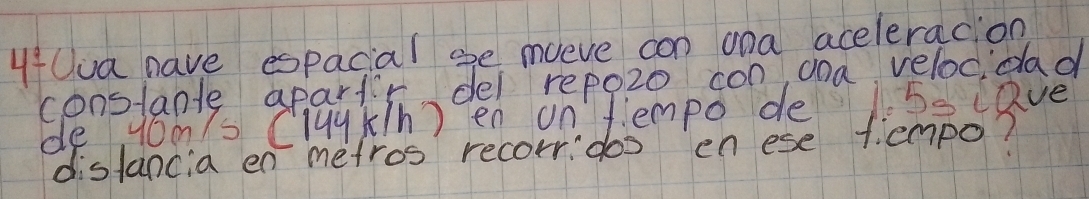 4ª Una nave espacial se mueve con una aceleracion
constante apartir del repozo con una velocidad
de 40m/s (144k/h) en un tiempo de 1.5s ¿Que
distancia en metros recorridos en ese tiempo?